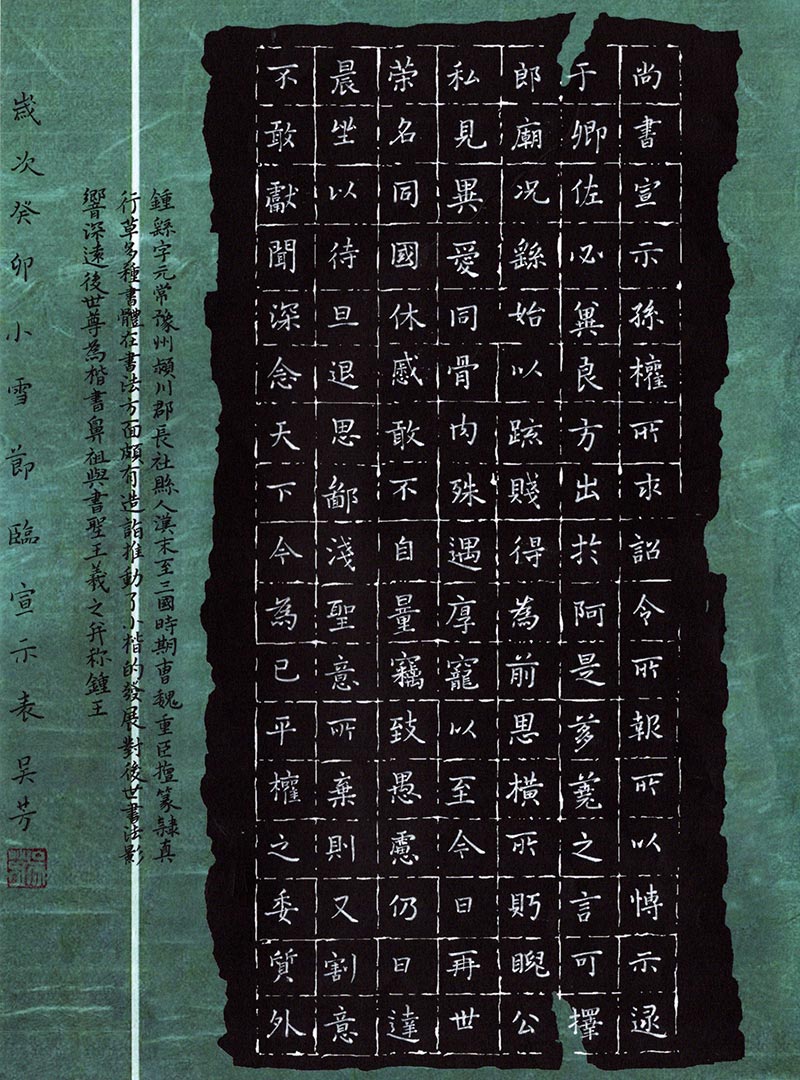 尚書宣示孫權所求詔令所報所以博示逮
于卿佐必冀良方出於阿是芻蕘之言可擇
郎廟况繇始以疏賤得為前恩橫所眄睨公
私見異愛同骨肉殊遇厚寵以至今日再世
榮名同國休慼敢不自量竊致愚慮仍日達
晨坐以待旦退思鄙淺聖意所棄則又割意
不敢獻聞深念天下今為已平權之委質外
鍾繇字元常豫州潁川郡長社縣人漢末至三國時期曹魏重臣擅篆隸真
行草多種書體在書法方面頗有造詣推動了小楷的發展對後世書法影
響深遠後世尊為楷書鼻祖與書聖王羲之并称鍾王
歲次癸卯小雪節臨宣示表吳芳